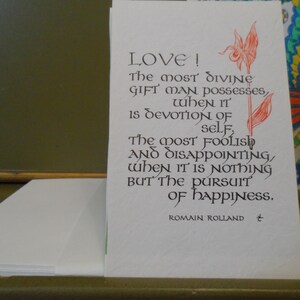 LOVE!
THE MOST DIVINE
GIFT MAN POSSESSES,
WHEN IT
IS DEVOTION OF
SELF;
THE MOST FOOLISH
AND DISAPPOINTING,
WHEN IT IS NOTHING
BUT THE PURSUIT
OF HAPPINESS.
ROMAIN ROLLAND t